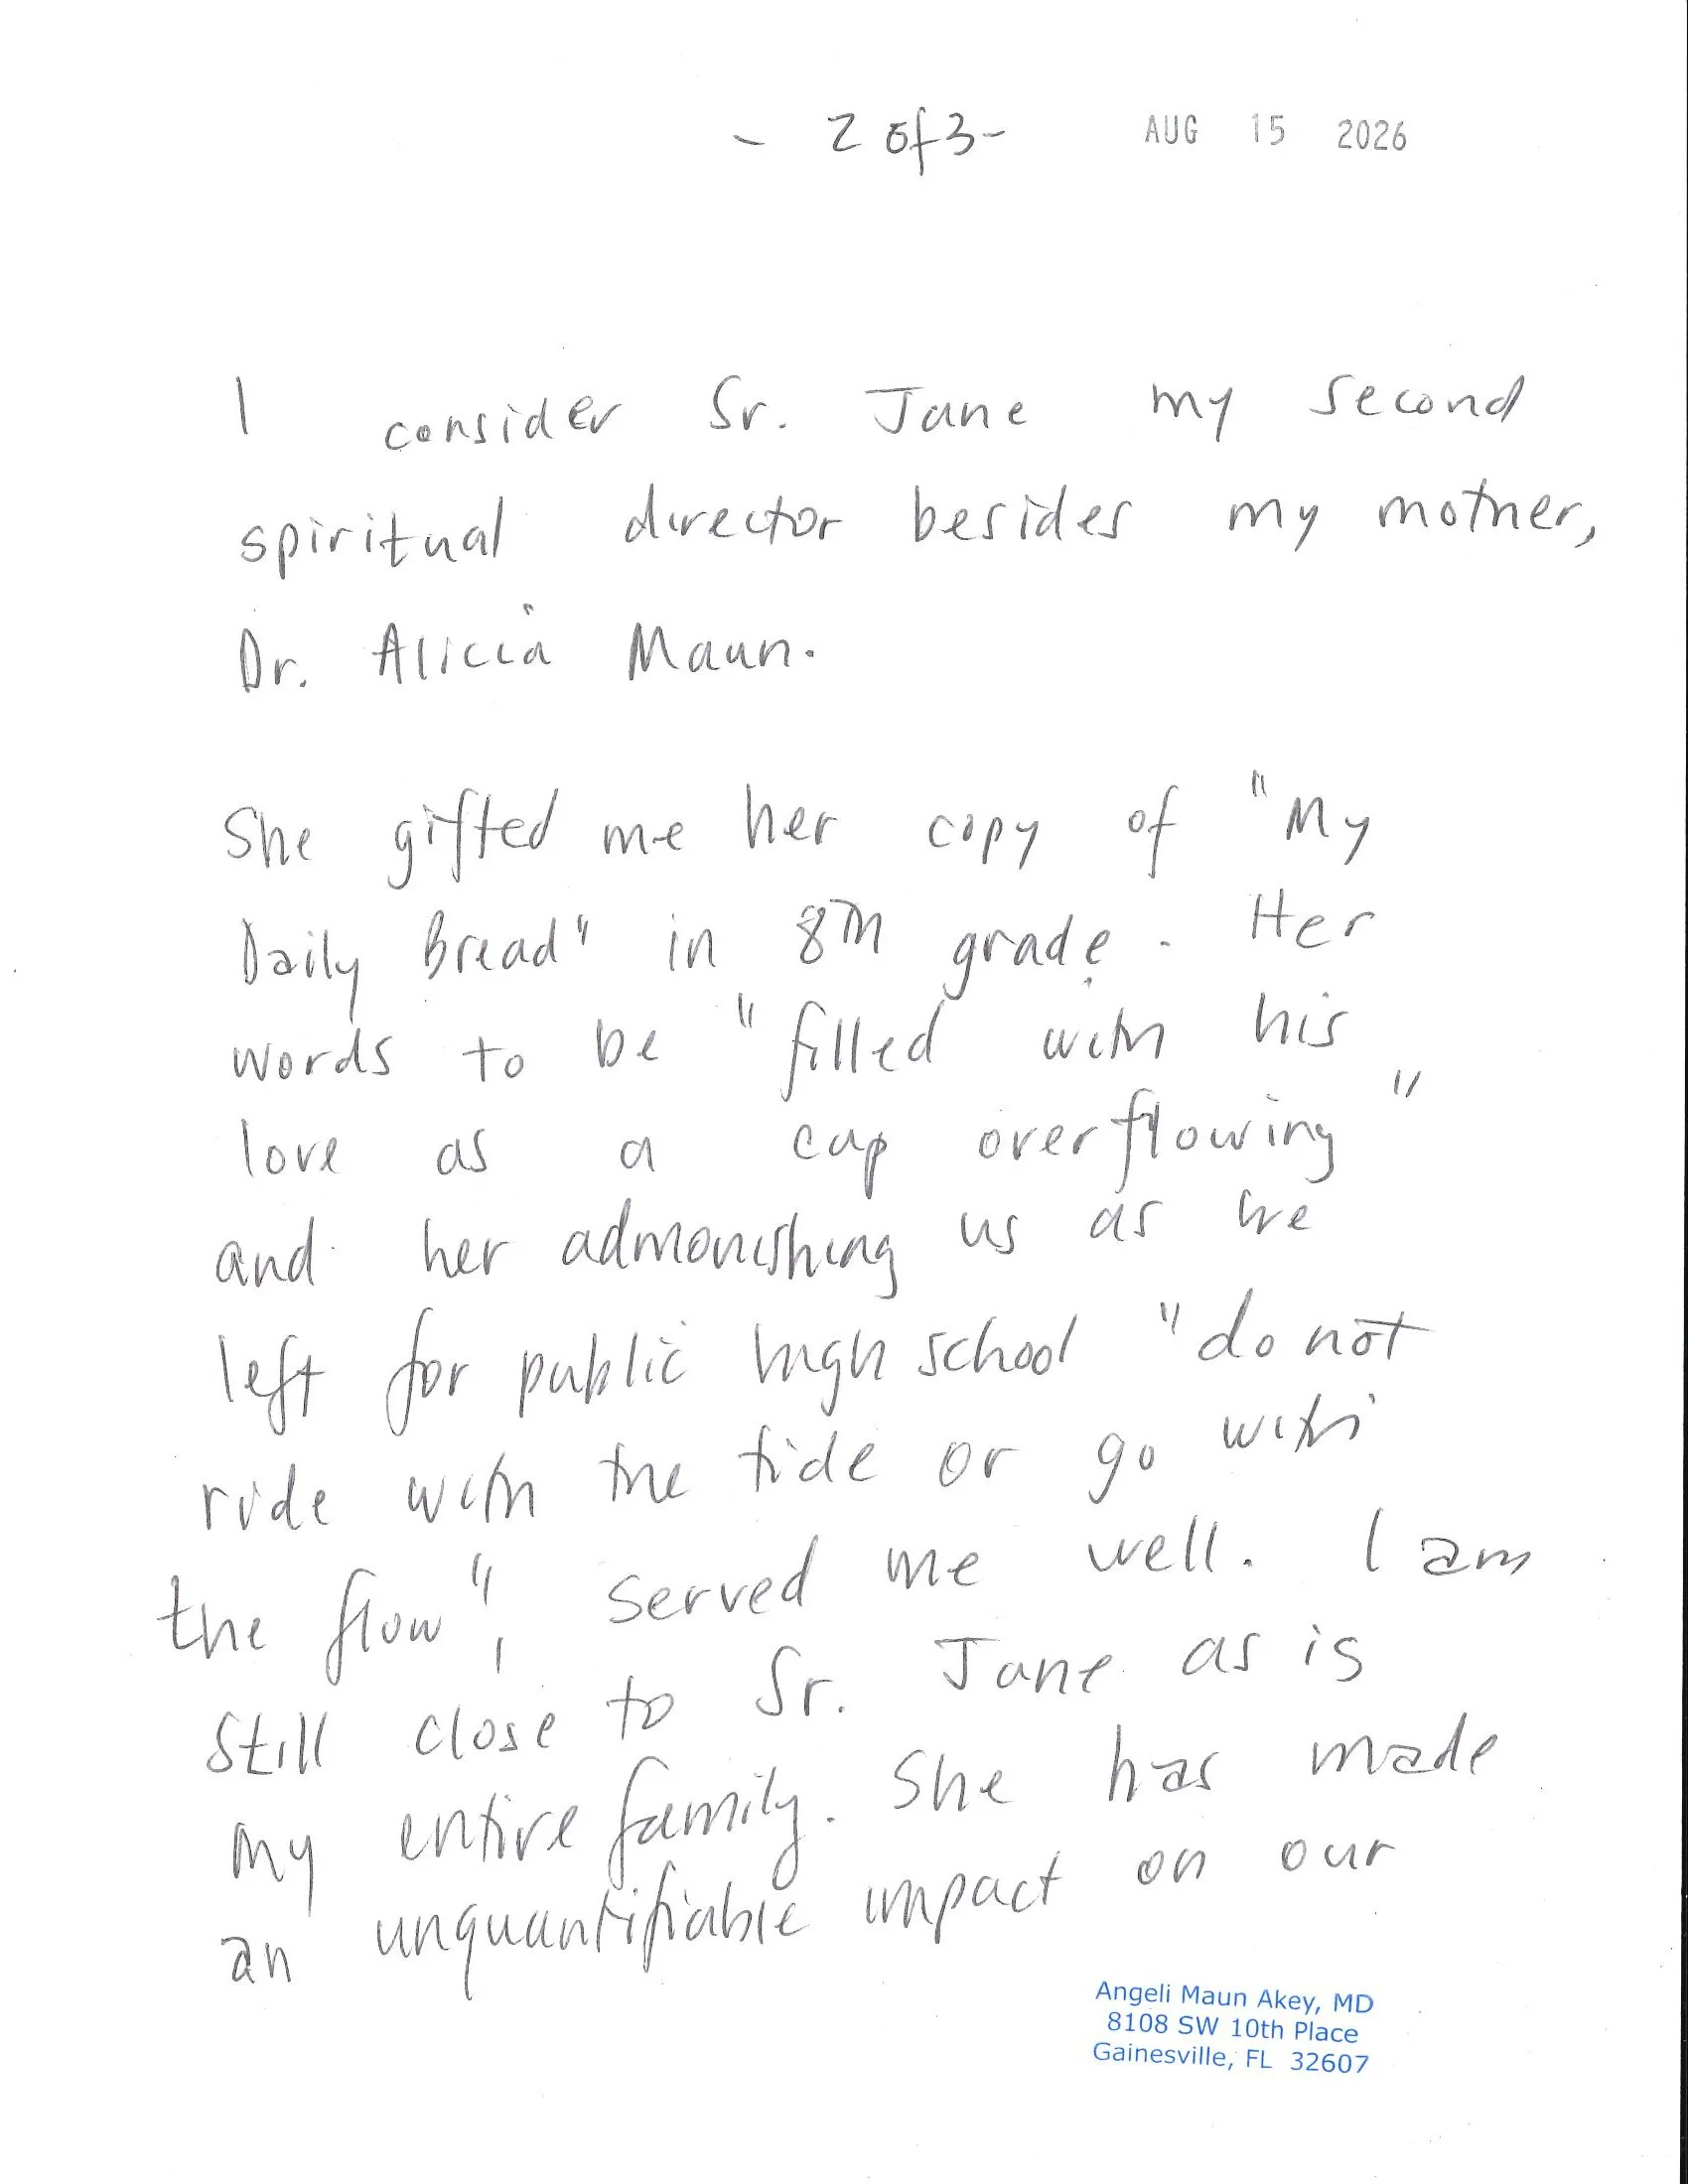 - 2 of 3 -
AUG 15 2026
I consider Sr. Jane my second
spiritual director besides my mother,
Dr. Alicia Maun.
She gifted me her copy of "My
Daily Bread" in 8th grade. Her
words to be "filled with his
love as a cup overflowing"
and her admonishing us as we
left for public high school "do not
ride with the tide or go with
the flow", served me well. I am
still close to Sr. Jane as is
my entire family. She has made
an unquantifiable impact on our
Angeli Maun Akey, MD
8108 SW 10th Place
Gainesville, FL 32607